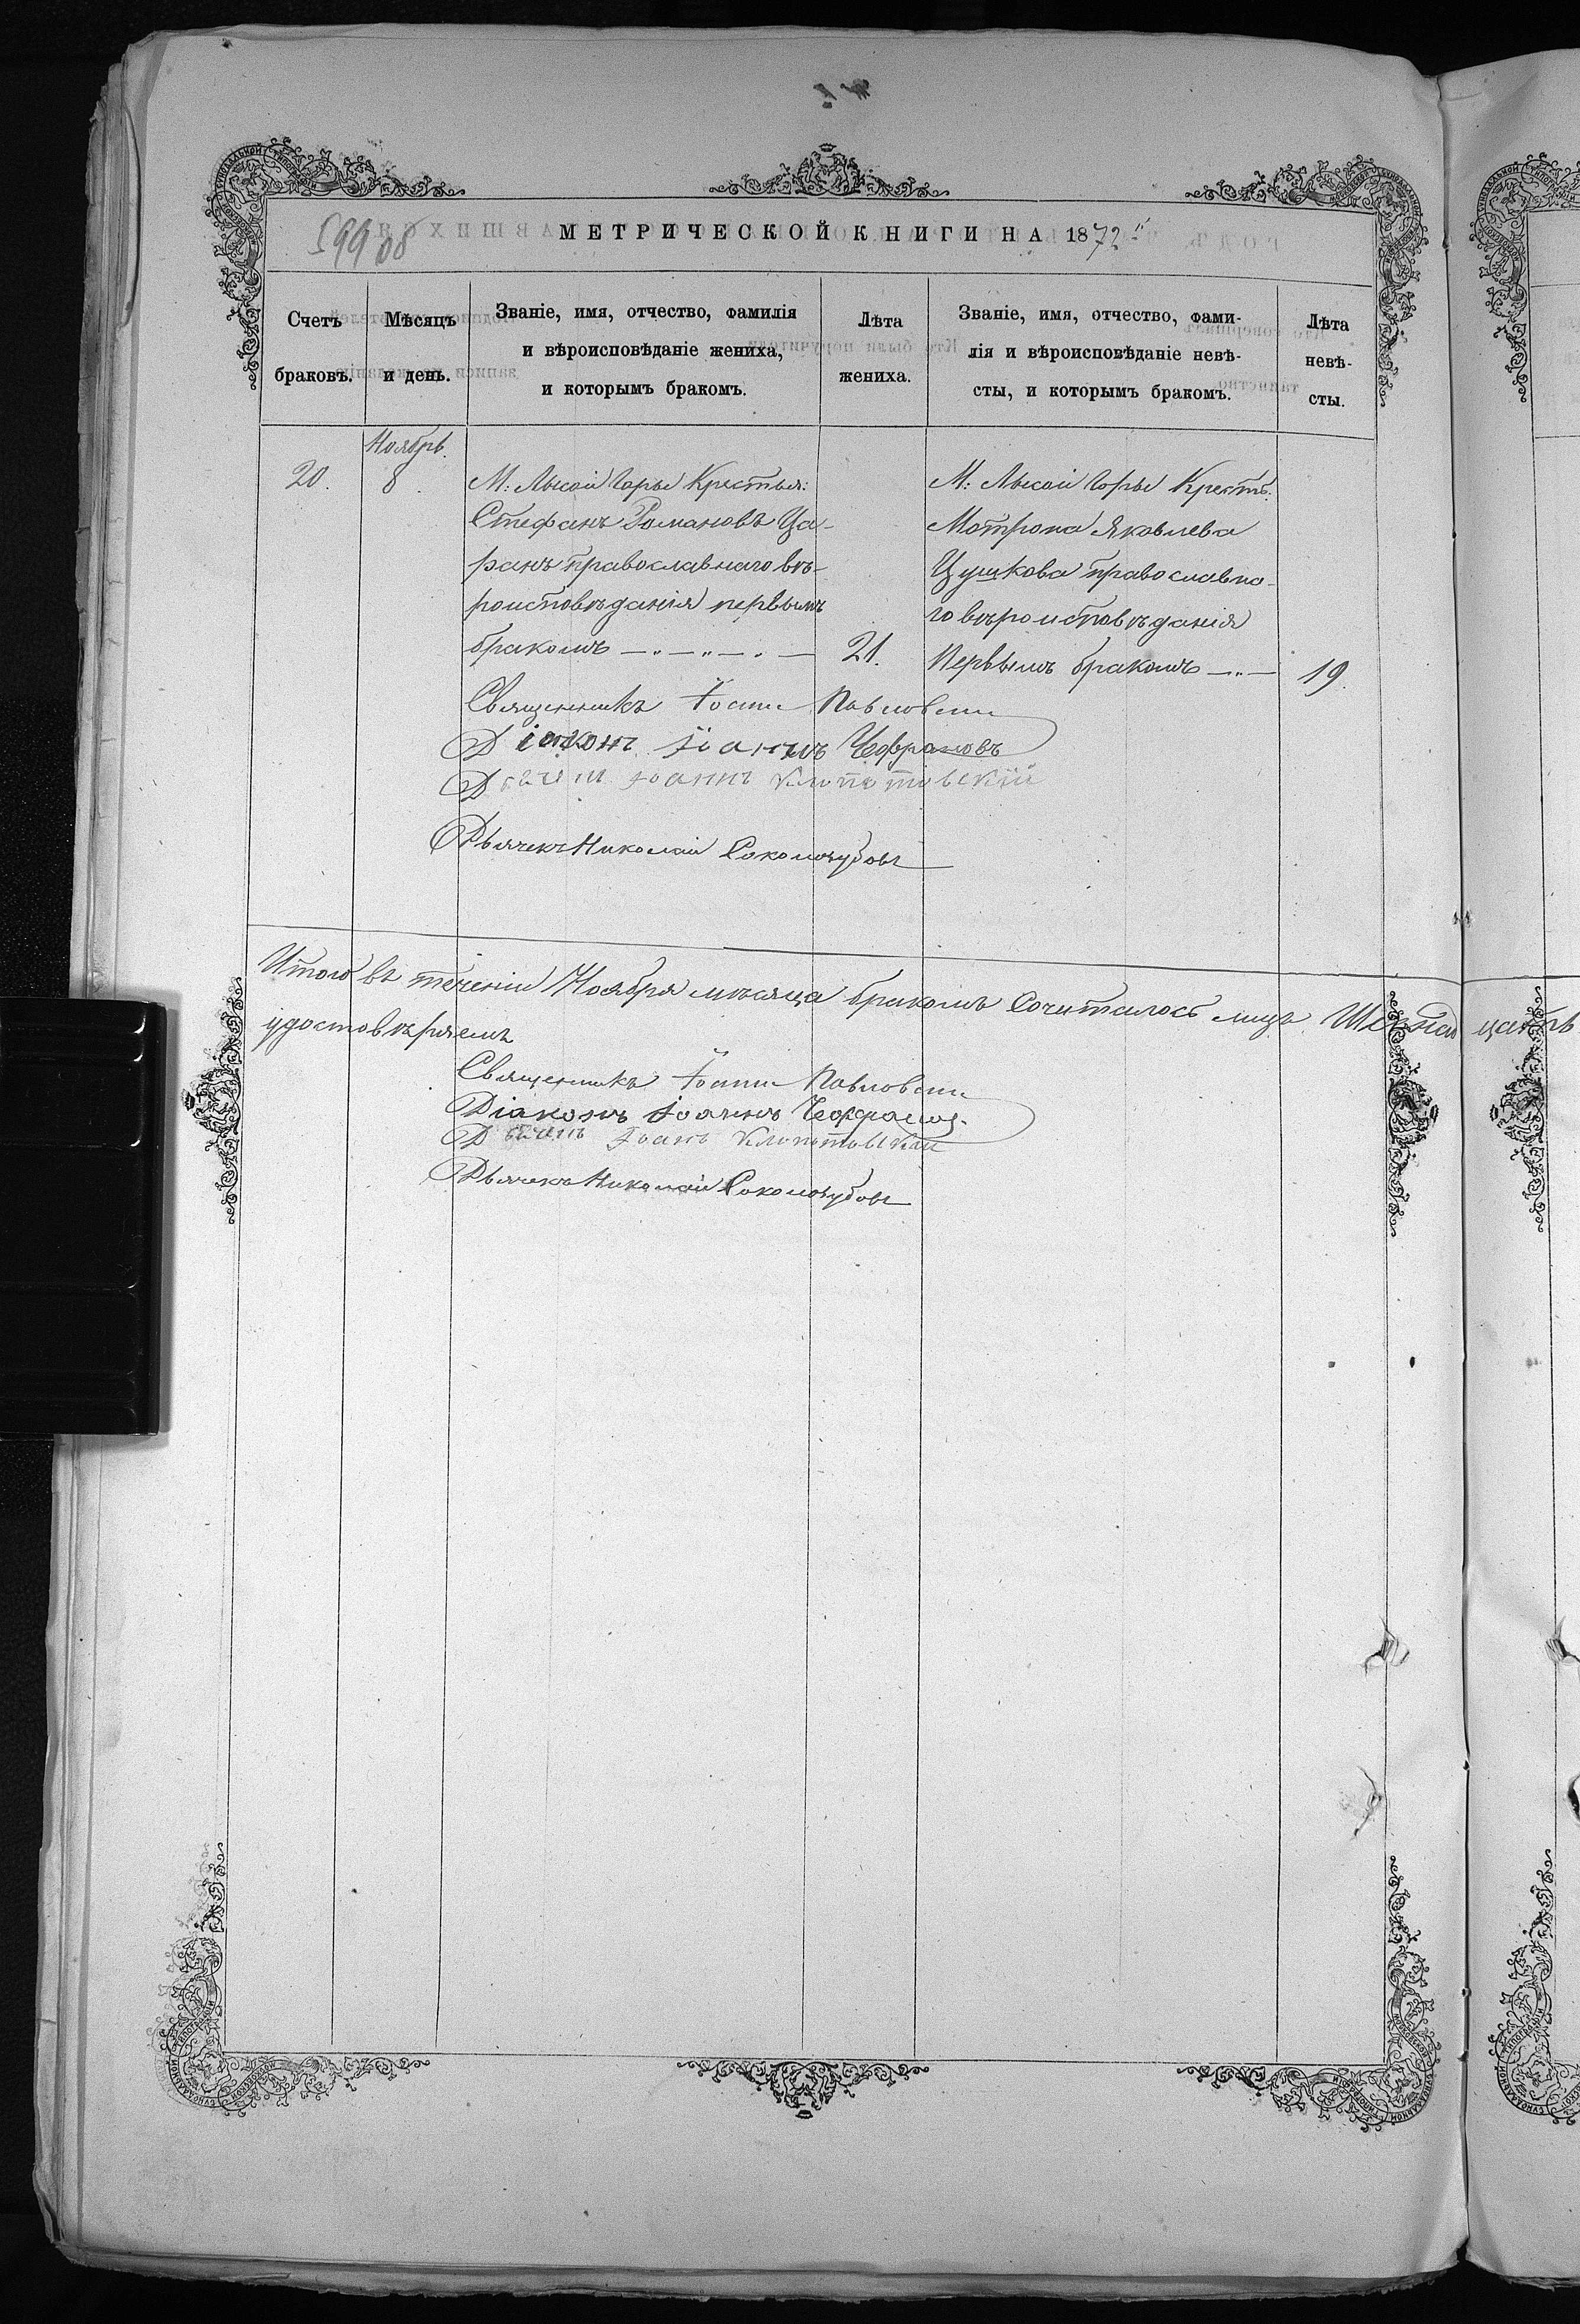 МЕТРИЧЕСКОЙ КНИГИ НА 1872
Счетъ браковъ.
Мѣсяцъ и день.
Званіе, имя, отчество, фамилія
и вѣроисповѣданіе жениха,
и которымъ бракомъ.
Лѣта
жениха.
Званіе, имя, отчество, фами-
лія и вѣроисповѣданіе невѣ-
сты, и которымъ бракомъ.
Лѣта
невѣ-
сты.
Ноябрь.
20.
8.
М: Лысой Горы Крестья:
Стефанъ Романовъ Ца-
ранъ православнаго вѣ-
роисповѣданія первымъ
бракомъ
21.
М: Лысой Горы Крестъ:
Мотрона Яковлева
Цушкова православна-
го вѣроисповѣданія
Первымъ бракомъ
19.
Священникъ Іоаннъ
Діаконъ Іоаннъ
Дьячекъ Іоаннъ Клопотовскій
Дьячекъ Николай
Итого въ теченіи Ноября мѣсяца бракомъ Сочиталось лицъ
удостовѣряемъ
Священникъ Іоаннъ
Діаконъ Іоаннъ
Дьячекъ Іоанъ Клопотовскій
Дьячекъ Николай